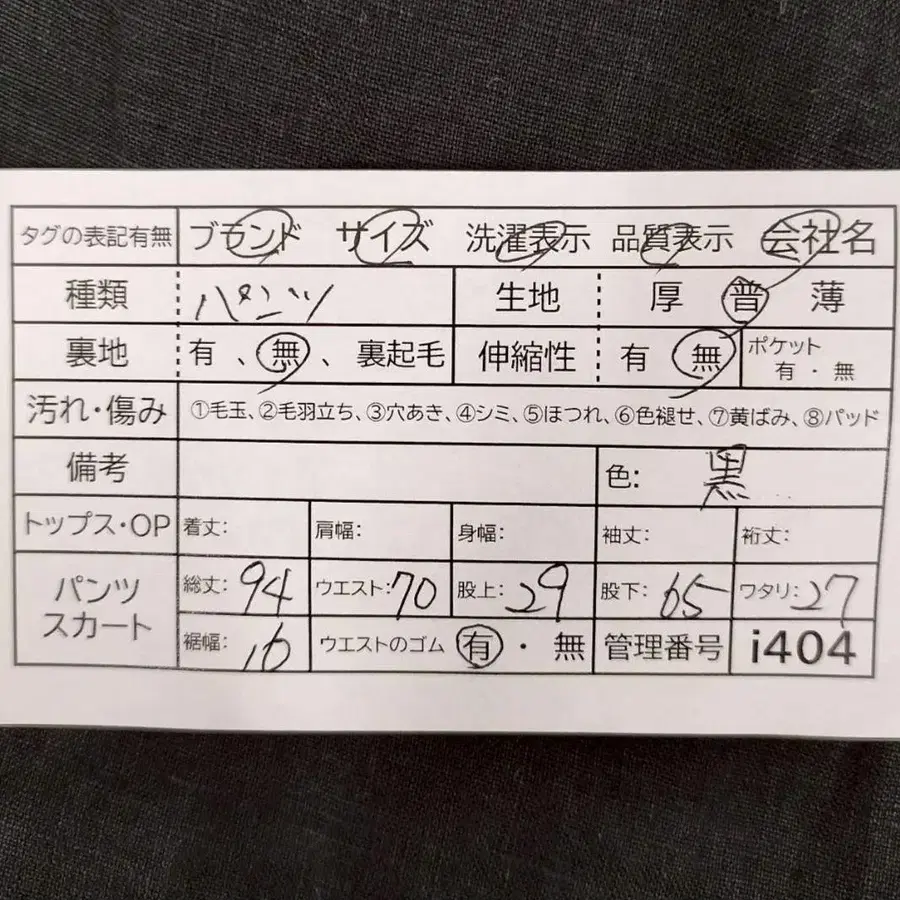 タグの表記有無 ブランド サイズ 洗濯表示 品質表示 会社名
種類 パンツ 生地 厚 普 薄
裏地 有、無、裏起毛 伸縮性 有 無 ポケット 有・無
汚れ・傷み ①毛玉、②毛羽立ち、③穴あき、④シミ、⑤ほつれ、⑥色褪せ、⑦黄ばみ、⑧パッド
備考 色: 黒
トップス・OP 着丈: 肩幅: 身幅: 袖丈: 裄丈:
パンツ スカート 総丈: 94 ウエスト: 70 股上: 29 股下: 65 ワタリ: 27
裾幅: 16 ウエストのゴム 有・無 管理番号 i404